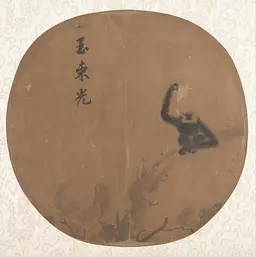 玉東光